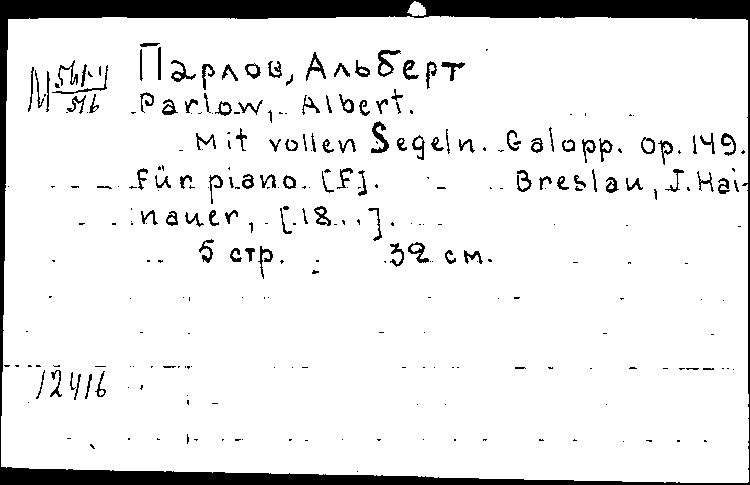 Парлов, Альберт
Parlow, Albert.
Mit vollen Segeln. Galopp. Op. 149.
Für piano. [F]. Breslau, J. Hai-
nauer, [18..].
5 стр. 32 см.
12416